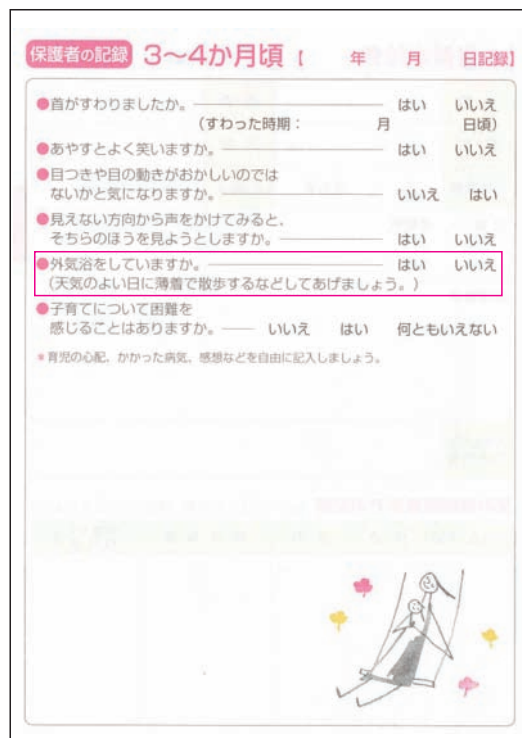 保護者の記録 3〜4か月頃【 年 月 日記録】
●首がすわりましたか。 はい いいえ
(すわった時期： 月 日頃)
●あやすとよく笑いますか。 はい いいえ
●目つきや目の動きがおかしいのでは
ないかと気になりますか。 いいえ はい
●見えない方向から声をかけてみると、
そちらのほうを見ようとしますか。 はい いいえ
●外気浴をしていますか。 はい いいえ
(天気のよい日に薄着で散歩するなどしてあげましょう。)
●子育てについて困難を
感じることはありますか。 いいえ はい 何ともいえない
＊育児の心配、かかった病気、感想などを自由に記入しましょう。